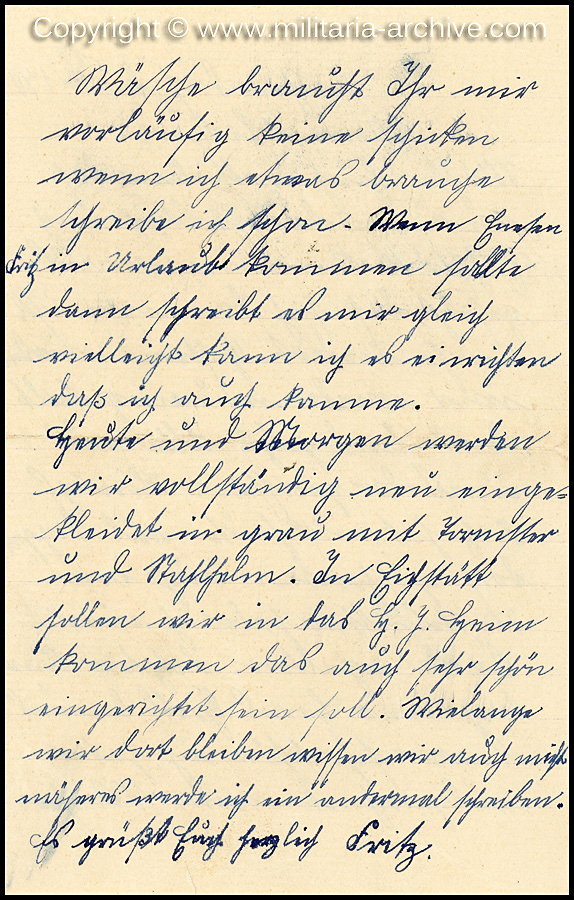 Copyright © www.militaria-archive.com
Wäsche braucht Ihr mir
vorläufig keine schicken
wenn ich etwas brauche
schreibe ich schon. Wenn
Fritz in Urlaub kommen sollte
dann schreibt es mir gleich
vielleicht kann ich es einrichten
daß ich auch komme.
Heute und Morgen werden
wir vollständig neu einge-
kleidet in grau mit Tornister
und Stahlhelm. In Eichstätt
sollen wir in das H. J. Heim
kommen das auch sehr schön
eingerichtet sein soll. Wielange
wir dort bleiben wissen wir auch nicht
näheres werde ich ein andermal schreiben.
Es grüßt Euch herzlich Fritz.